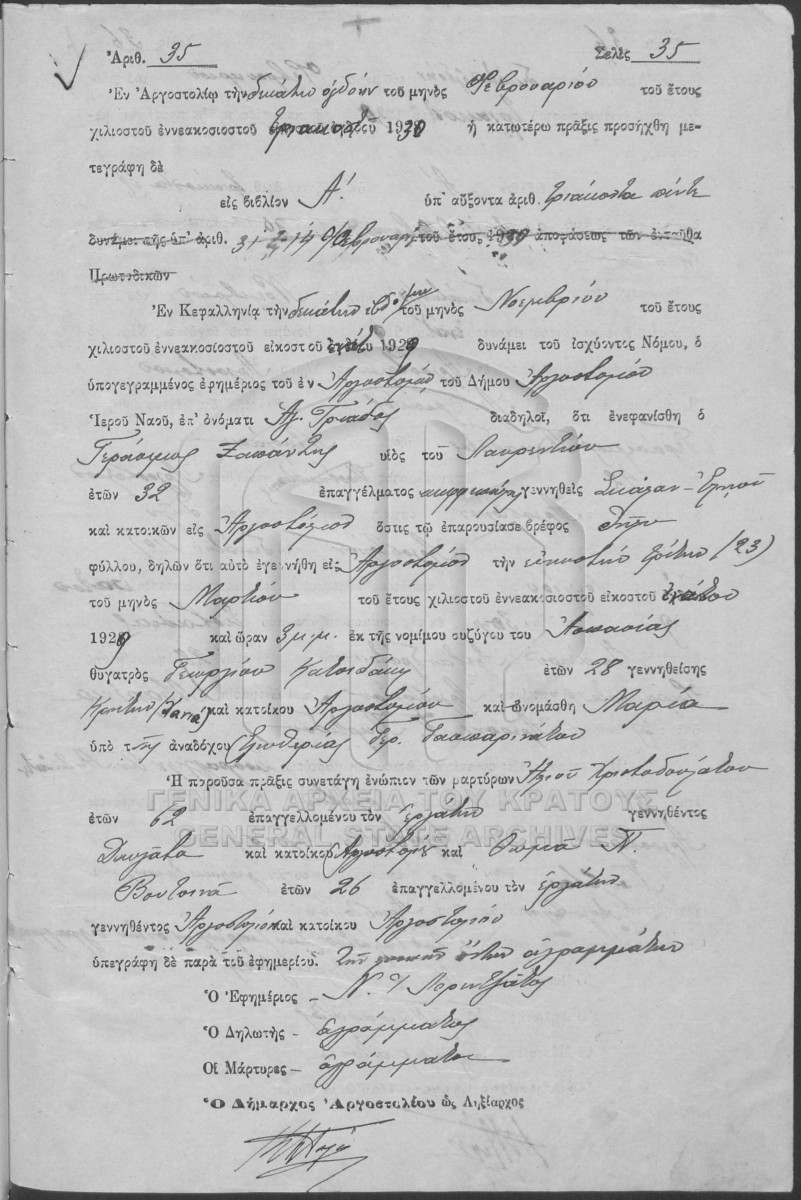 Ἀριθ. 35 Σελὶς 35
Ἐν Ἀργοστολίῳ τὴν δεκάτην ὀγδόην τοῦ μηνὸς Φεβρουαρίου τοῦ ἔτους
χιλιοστοῦ ἐννεακοσιοστοῦ τριακοστοῦ 1930 ἡ κατωτέρω πρᾶξις προσήχθη με-
τεγράφη δὲ
εἰς βιβλίον Α΄ ὑπ' αὔξοντα ἀριθ. τριάκοντα πέντε
δυνάμει τῆς ὑπ' ἀριθ. τοῦ ἔτους 1930 ἀποφάσεως τῶν ἐνταῦθα
Πρωτοδικῶν
Ἐν Κεφαλληνίᾳ τὴν δεκάτην ἑβδόμην τοῦ μηνὸς Νοεμβρίου τοῦ ἔτους
χιλιοστοῦ ἐννεακοσιοστοῦ εἰκοστοῦ 1929 δυνάμει τοῦ ἰσχύοντος Νόμου, ὁ
ὑπογεγραμμένος ἐφημέριος τοῦ ἐν Ἀργοστολίῳ τοῦ Δήμου Ἀργοστολίου
Ἱεροῦ Ναοῦ, ἐπ' ὀνόματι Ἁγ. Τριάδος διαδηλοῖ, ὅτι ἐνεφανίσθη ὁ
Γεράσιμος Ζαπάντης υἱὸς τοῦ Λαυρεντίου
ἐτῶν 32 ἐπαγγέλματος γεννηθεὶς
καὶ κατοικῶν εἰς Ἀργοστόλιον ὅστις τῷ ἐπαρουσίασε βρέφος θήλυ
φύλλου, δηλῶν ὅτι αὐτὸ ἐγεννήθη εἰς Ἀργοστόλιον τὴν εἰκοστὴν τρίτην (23)
τοῦ μηνὸς Μαρτίου τοῦ ἔτους χιλιοστοῦ ἐννεακοσιοστοῦ εἰκοστοῦ ἐνάτου
1929 καὶ ὥραν 3 μ.μ. ἐκ τῆς νομίμου συζύγου του Ἀσπασίας
θυγατρὸς Γεωργίου Κατσιδάκη ἐτῶν 28 γεννηθείσης
Κρήτην (Χανιά) καὶ κατοίκου Ἀργοστολίου καὶ ὠνομάσθη Μαρία
ὑπὸ τῆς ἀναδόχου Ἐλευθερίας Γερ. Γασπαρινάτου
Ἡ παροῦσα πρᾶξις συνετάγη ἐνώπιον τῶν μαρτύρων Χριστοδουλάτου
ἐτῶν 62 ἐπαγγελλομένου τὸν ἐργάτην γεννηθέντος
Διλινάτα καὶ κατοίκου Ἀργοστολίου καὶ Θωμᾶ Ν.
Βουτσινᾶ ἐτῶν 26 ἐπαγγελλομένου τὸν ἐργάτην
γεννηθέντος Ἀργοστόλιον καὶ κατοίκου Ἀργοστολίου
ὑπεγράφη δὲ παρὰ τοῦ ἐφημερίου. ὄντων ἀγραμμάτων
Ὁ Ἐφημέριος - Ν.
Ὁ Δηλωτὴς - ἀγράμματος
Οἱ Μάρτυρες - ἀγράμματοι
Ὁ Δήμαρχος Ἀργοστολίου ὡς Ληξίαρχος
ΓΕΝΙΚΑ ΑΡΧΕΙΑ ΤΟΥ ΚΡΑΤΟΥΣ
GENERAL STATE ARCHIVES